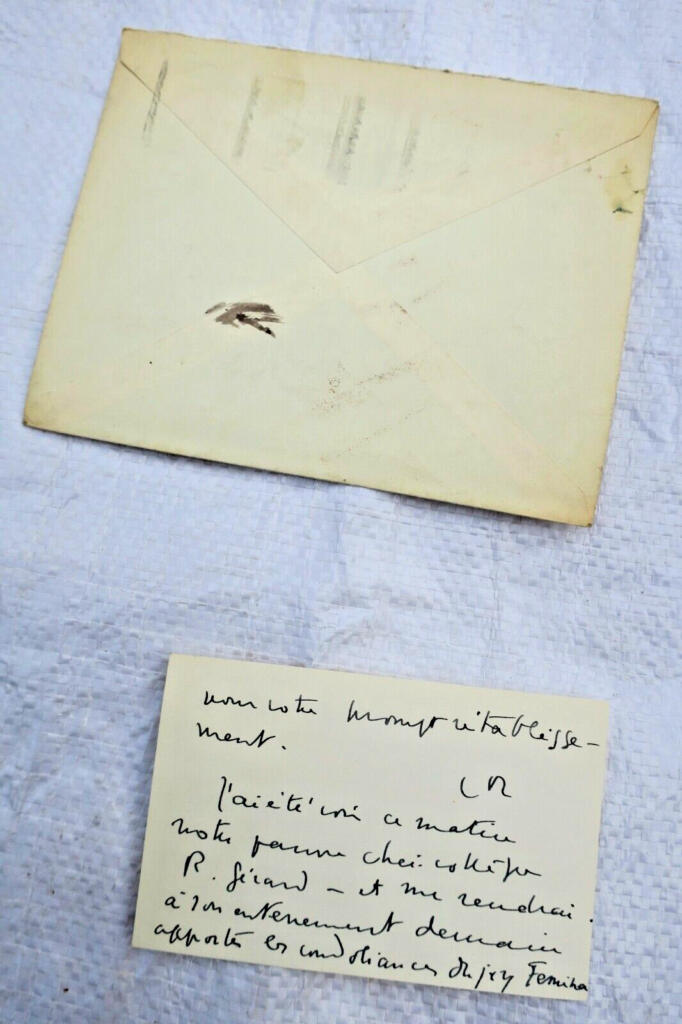 pour votre prompt rétablisse-
ment.
J'ai été voir ce matin
notre pauvre cher collègue
R. Gérard – et me rendrai
à son enterrement demain
apporter les condoléances du jury Femina